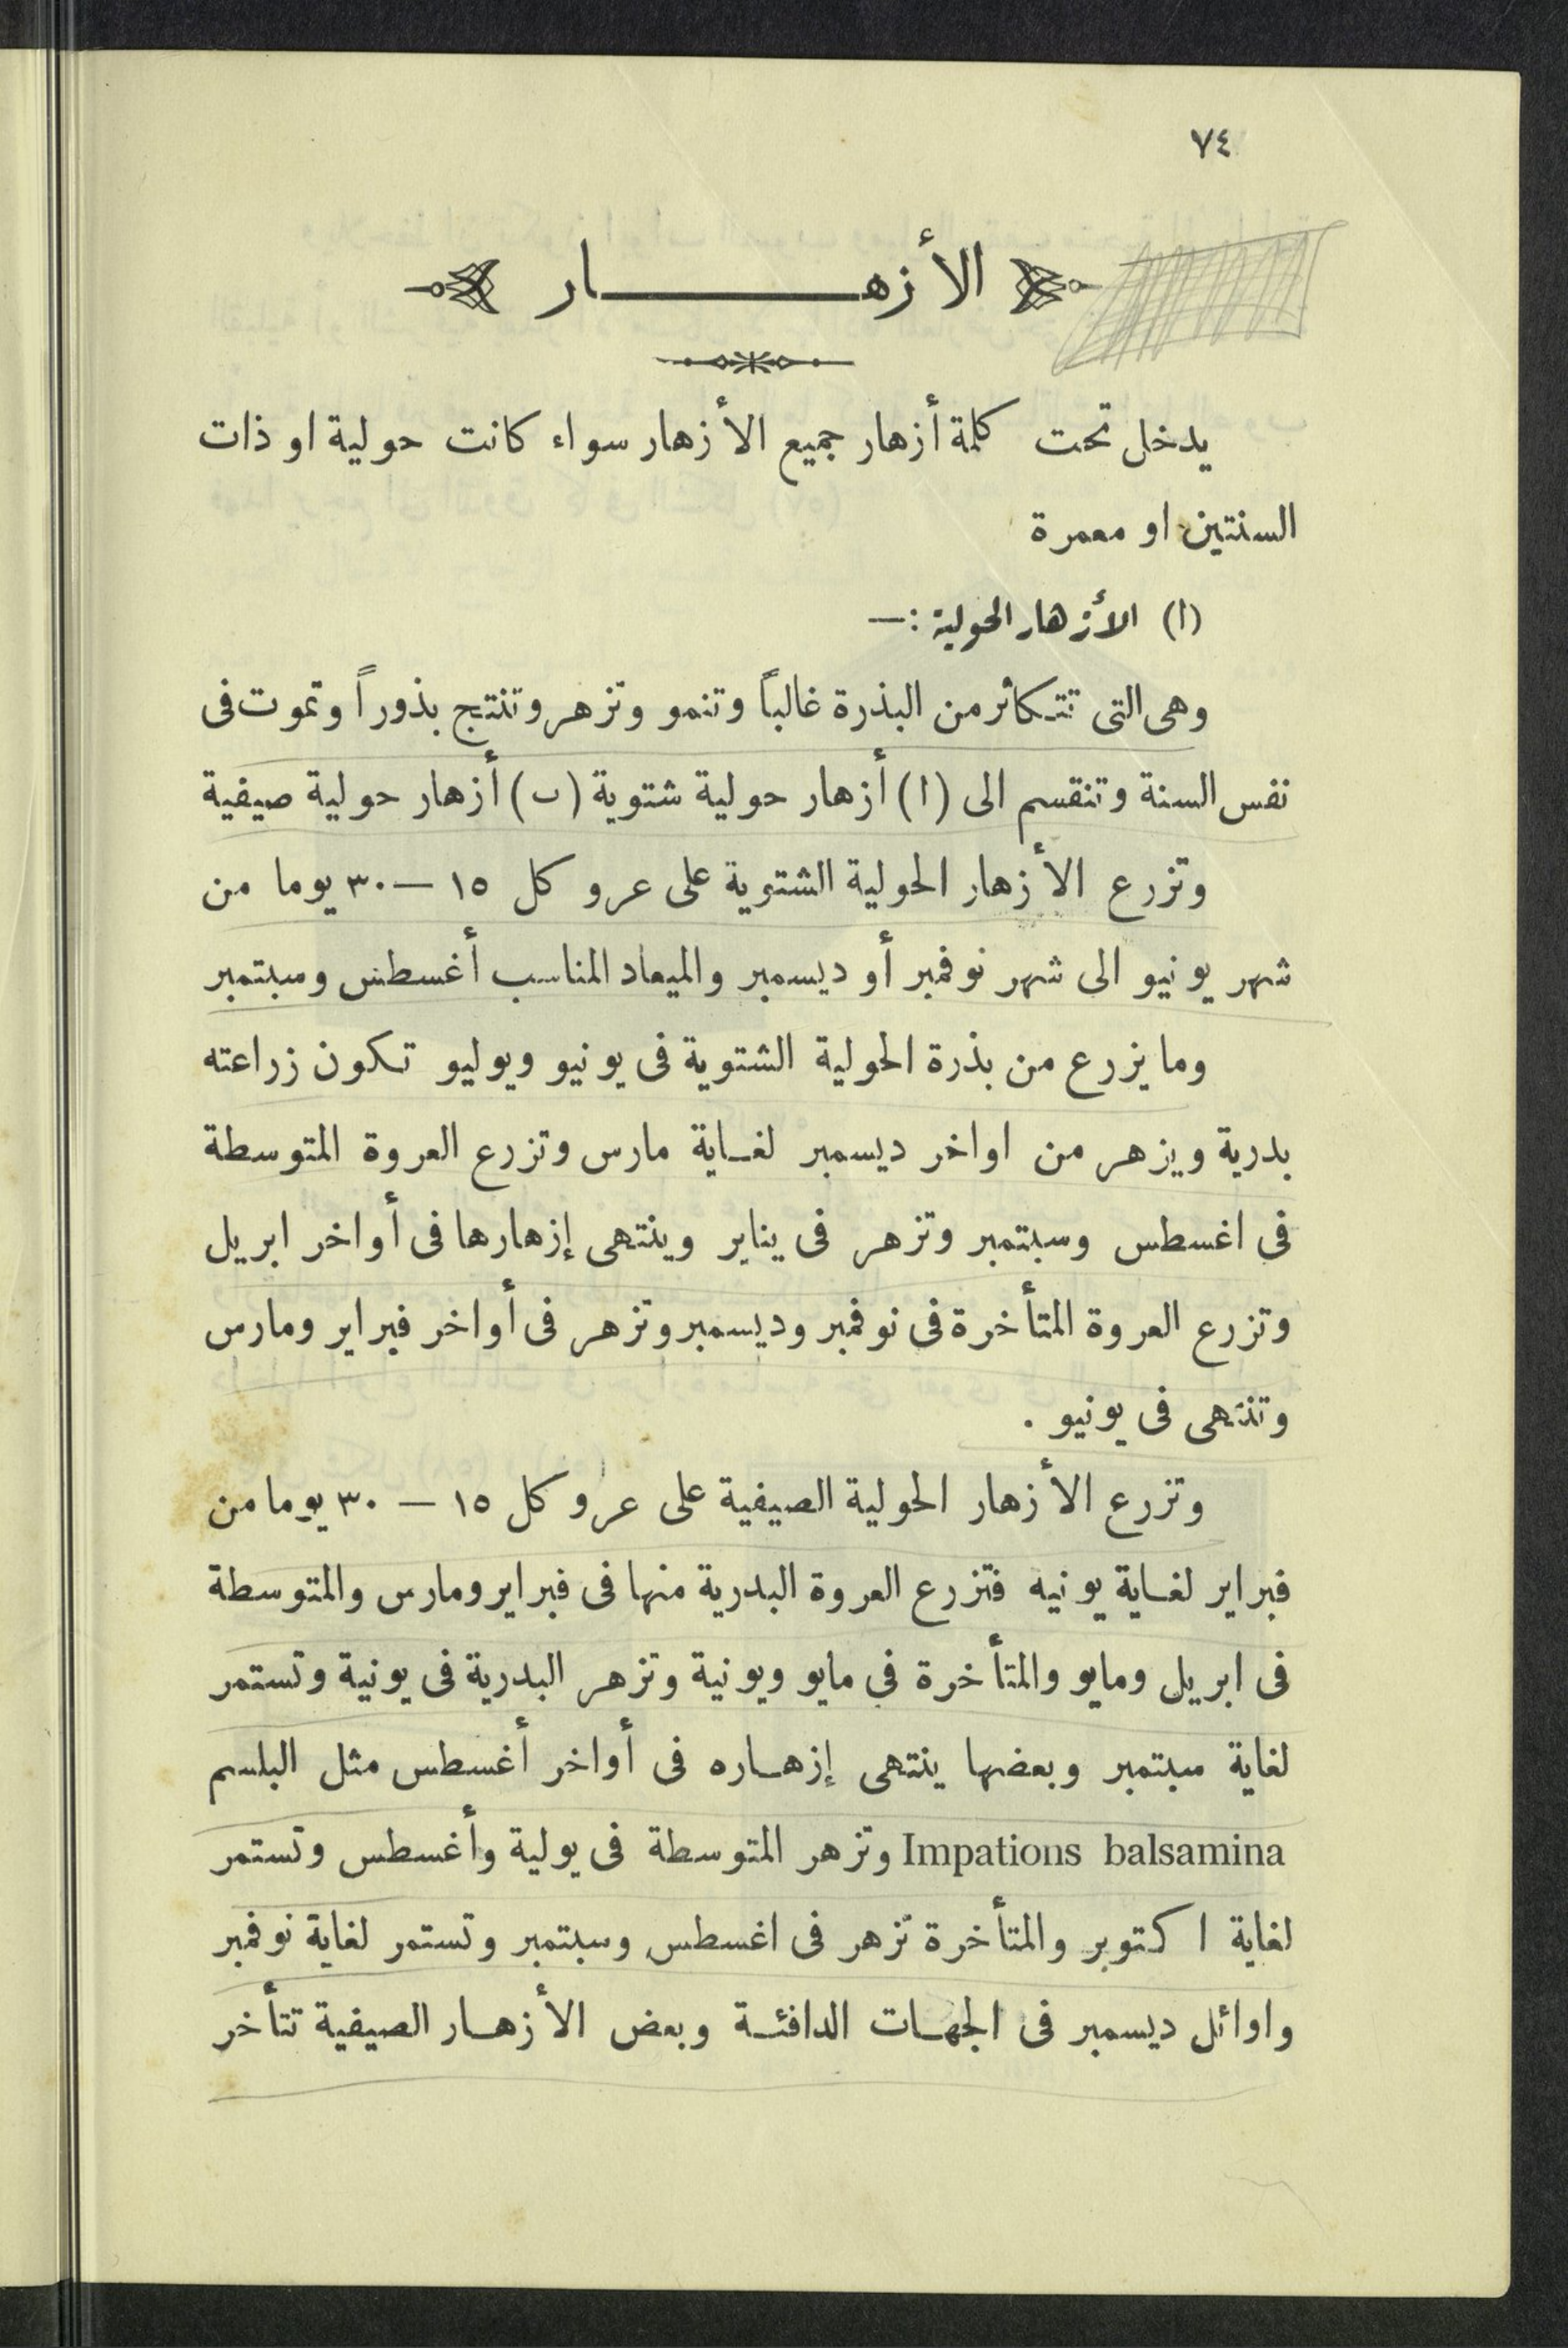 ٧٤
الأزهـــــــــار
يدخل تحت كلمة أزهار جميع الأزهار سواء كانت حولية او ذات
السنتين او معمرة
(ا) الأزهار الحولية :—
وهى التى تتكاثر من البذرة غالباً وتنمو وتزهر وتنتج بذوراً وتموت فى
نفس السنة وتنقسم الى (ا) أزهار حولية شتوية (ب) أزهار حولية صيفية
وتزرع الأزهار الحولية الشتوية على عرو كل ١٥ — ٣٠ يوما من
شهر يونيو الى شهر نوفمبر أو ديسمبر والميعاد المناسب أغسطس وسبتمبر
وما يزرع من بذرة الحولية الشتوية فى يونيو ويوليو تكون زراعته
بدرية ويزهر من اواخر ديسمبر لغـاية مارس وتزرع العروة المتوسطة
فى اغسطس وسبتمبر وتزهر فى يناير وينتهى إزهارها فى أواخر ابريل
وتزرع العروة المتأخرة فى نوفمبر وديسمبر وتزهر فى أواخر فبراير ومارس
وتنتهى فى يونيو .
وتزرع الأزهار الحولية الصيفية على عرو كل ١٥ — ٣٠ يوما من
فبراير لغـاية يونيه فتزرع العروة البدرية منها فى فبراير ومارس والمتوسطة
فى ابريل ومايو والمتأخرة فى مايو ويونية وتزهر البدرية فى يونية وتستمر
لغاية سبتمبر وبعضها ينتهى إزهـاره فى أواخر أغسطس مثل البلسم
Impations balsamina وتزهر المتوسطة فى يولية وأغسطس وتستمر
لغاية اكتوبر والمتأخرة تزهر فى اغسطس وسبتمبر وتستمر لغاية نوفمبر
واوائل ديسمبر فى الجهـات الدافئـة وبعض الأزهـار الصيفية تتأخر